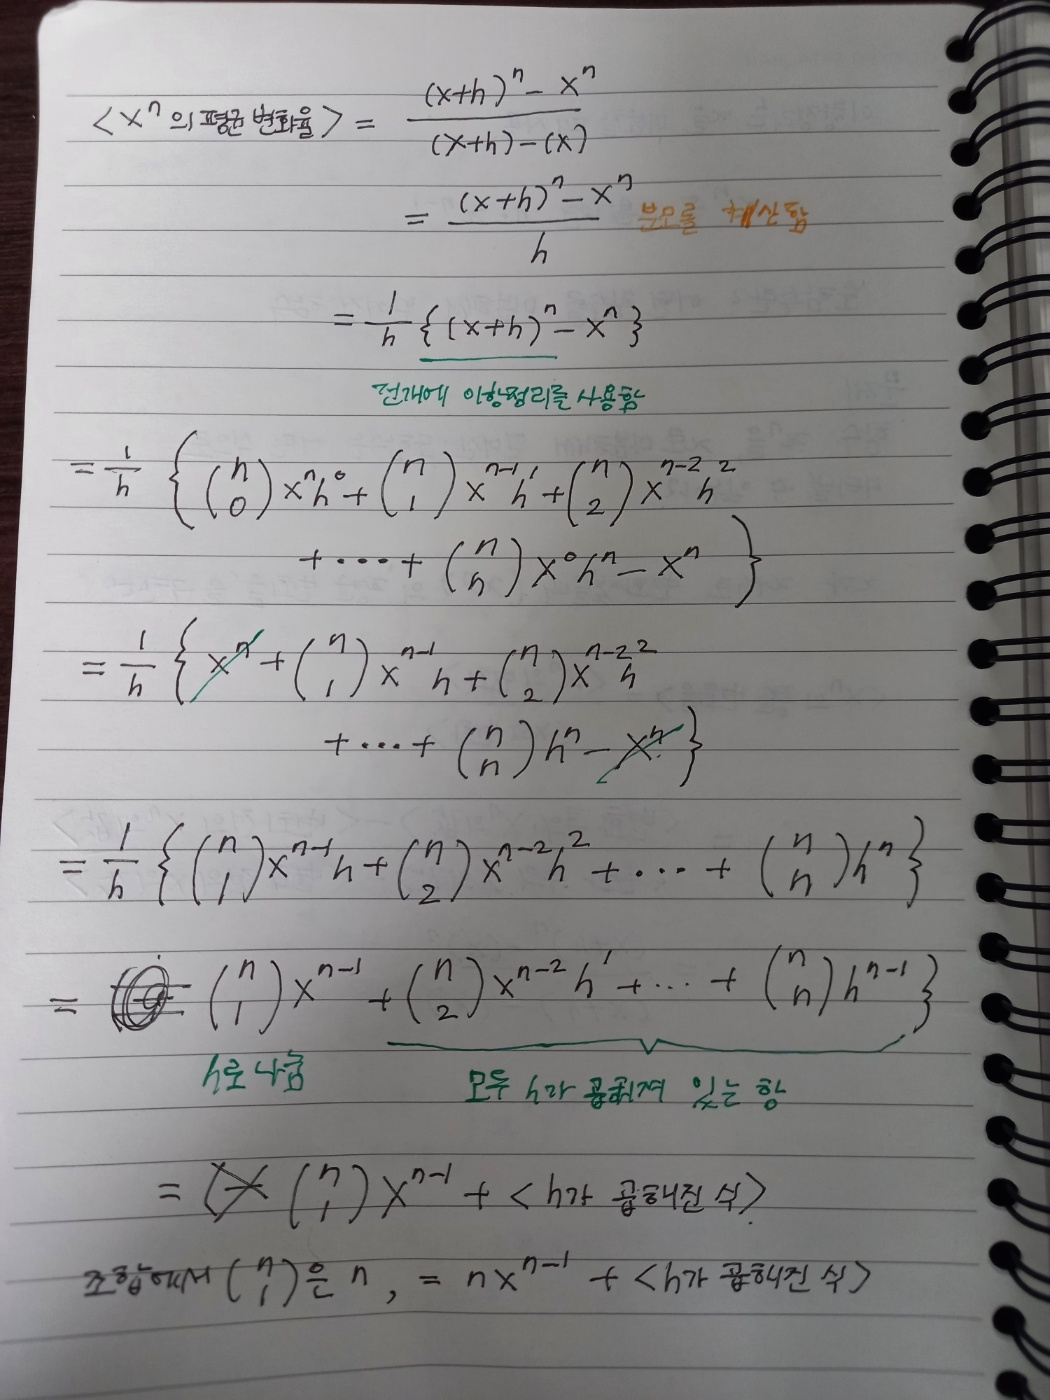 <xⁿ의 평균 변화율> = ((x+h)ⁿ − xⁿ) / ((x+h) − (x))
= ((x+h)ⁿ − xⁿ) / h 분모를 계산함
= 1/h {(x+h)ⁿ − xⁿ}
전개에 이항정리를 사용함
= 1/h { (n 0) xⁿh⁰ + (n 1) xⁿ⁻¹h¹ + (n 2) xⁿ⁻²h²
+ ··· + (n n) x⁰hⁿ − xⁿ }
= 1/h { xⁿ + (n 1) xⁿ⁻¹h + (n 2) xⁿ⁻²h²
+ ··· + (n n) hⁿ − xⁿ }
= 1/h { (n 1) xⁿ⁻¹h + (n 2) xⁿ⁻²h² + ··· + (n n) hⁿ }
= (n 1) xⁿ⁻¹ + (n 2) xⁿ⁻²h¹ + ··· + (n n) hⁿ⁻¹ }
h로 나눔 모두 h가 곱해져 있는 항
= (n 1) xⁿ⁻¹ + <h가 곱해진 식>
조합에서 (n 1)은 n, = nxⁿ⁻¹ + <h가 곱해진 식>